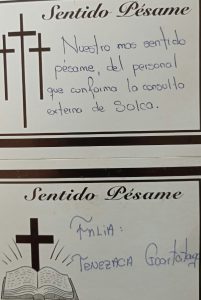 Sentido Pésame
Nuestro mas sentido
pésame, del personal
que conforma la consulta
externa de Solca.
Sentido Pésame
FMLIA:
TENEZACA